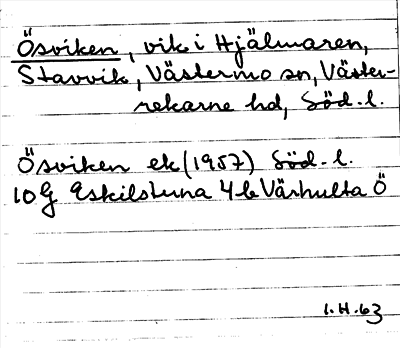 Ösviken, vik i Hjälmaren,
Stavvik, Västermo sn, Väster-
rekarne hd, Söd. l.
Ösviken ek (1957) Söd. l.
10G Eskilstuna 4b Värhulta Ö
I.H.63